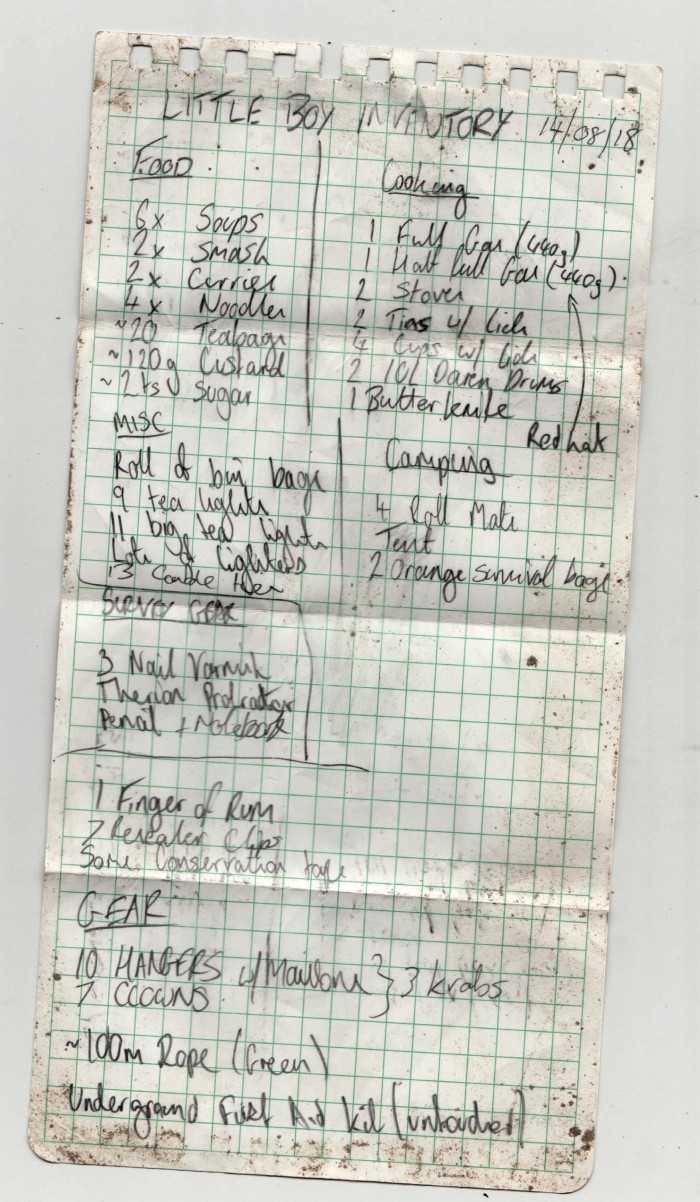 LITTLE BOY INVENTORY 14/08/18
FOOD
6x Soups
2x Smash
2x Curries
4x Noodles
~20 Teabags
~120g Custard
~2 ts Sugar
Cooking
1 Full Gas (440g)
1 Half full Gas (440g)
2 Stoves
2 Tins w/ Lids
4 Cups w/ Lids
2 10L Daren Drums
1 Butter knife
Red hat
MISC
Roll of bin bags
9 tea lights
11 big tea lights
Lots of Lighters
13 Cable ties
Camping
4 Roll Mats
Tent
2 Orange survival bags
SURVEY GEAR
3 Nail Varnish
Therion Protractor
Pencil + Notebook
1 Finger of Rum
7 Resealer Clips
Some Conservation tape
GEAR
10 HANGERS w/ Maillons } 3 krabs
7 CLOWNS
~100m Rope (Green)
Underground First Aid Kit (untouched)